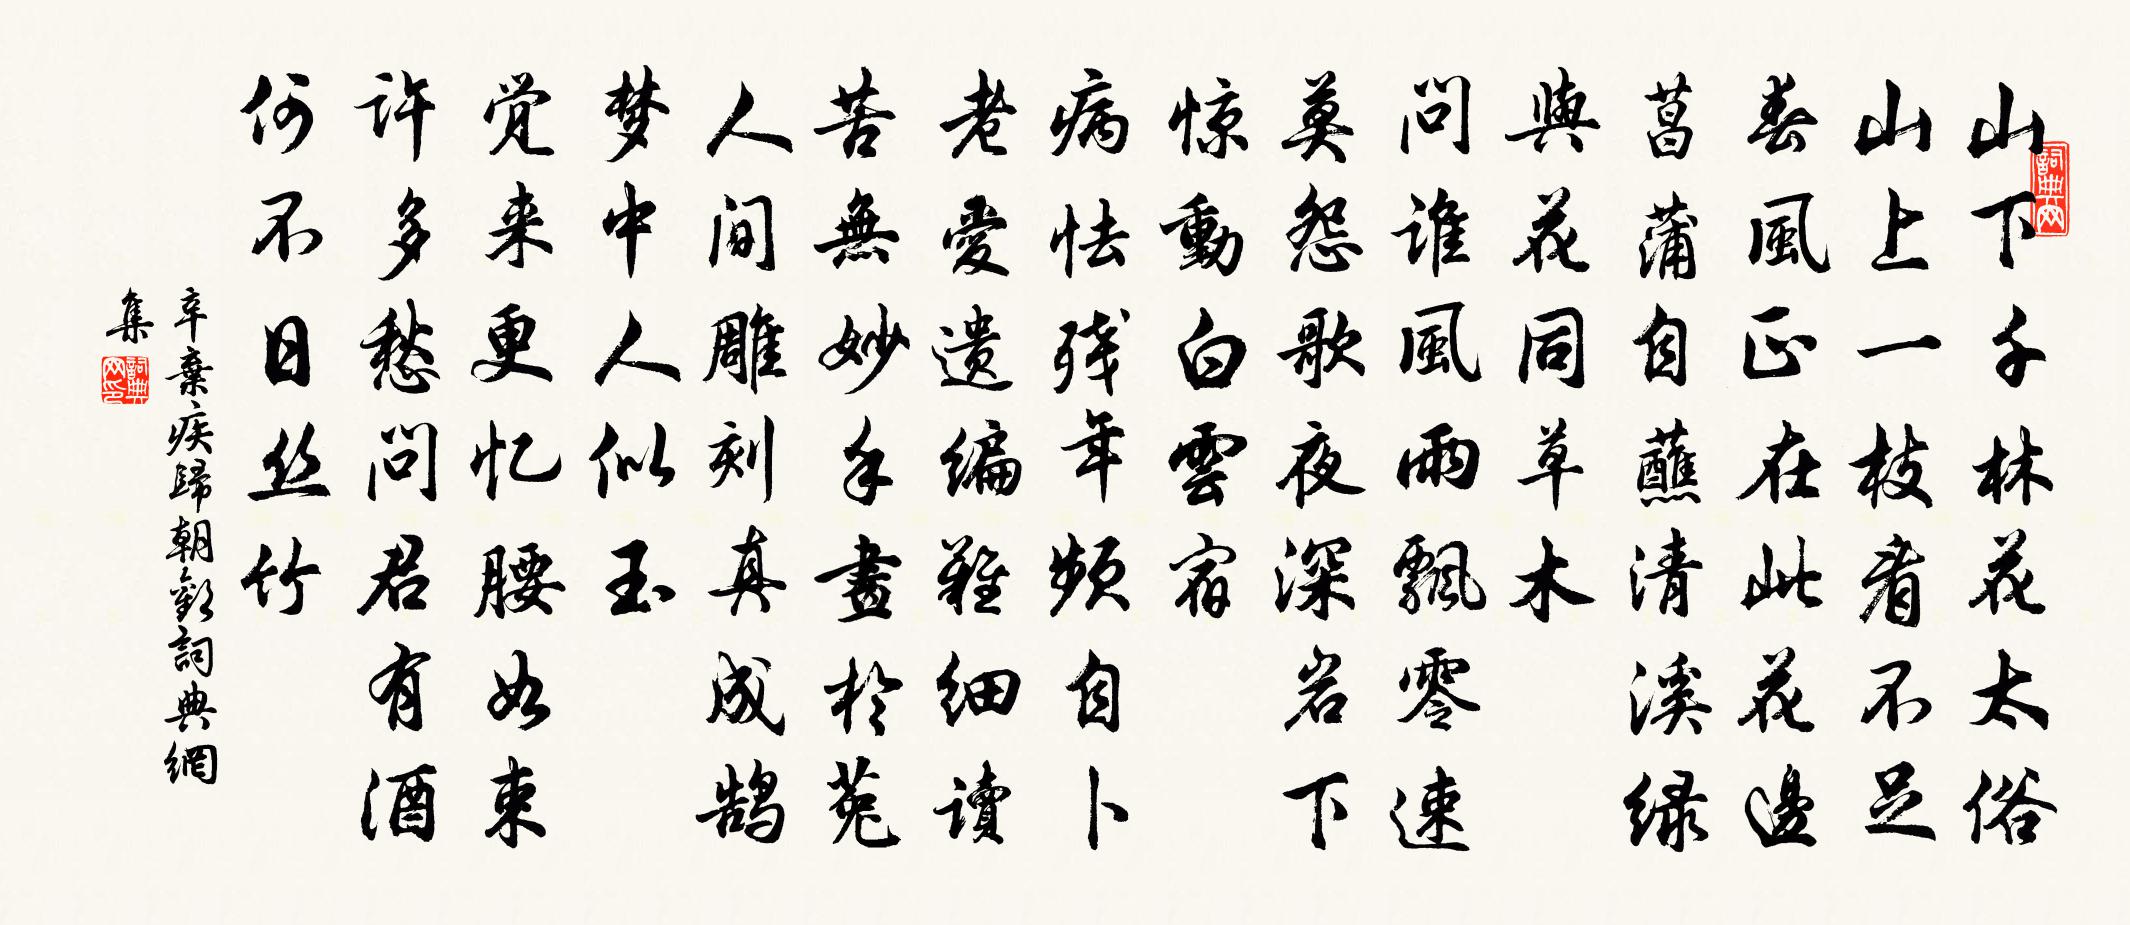 詞典网
山下千林花太俗
山上一枝看不足
春風正在此花邊
菖蒲自蘸清溪绿
與花同草木
問誰風雨飄零速
莫怨歌夜深岩下
惊動白雲宿
病怯残年频自卜
老愛遗编難细讀
苦無妙手畫於菟
人间雕刻真成鹄
梦中人似玉
觉来更忆腰如束
許多愁問君有酒
何不日丝竹
辛棄疾歸朝歡詞典網
集
詞典网印